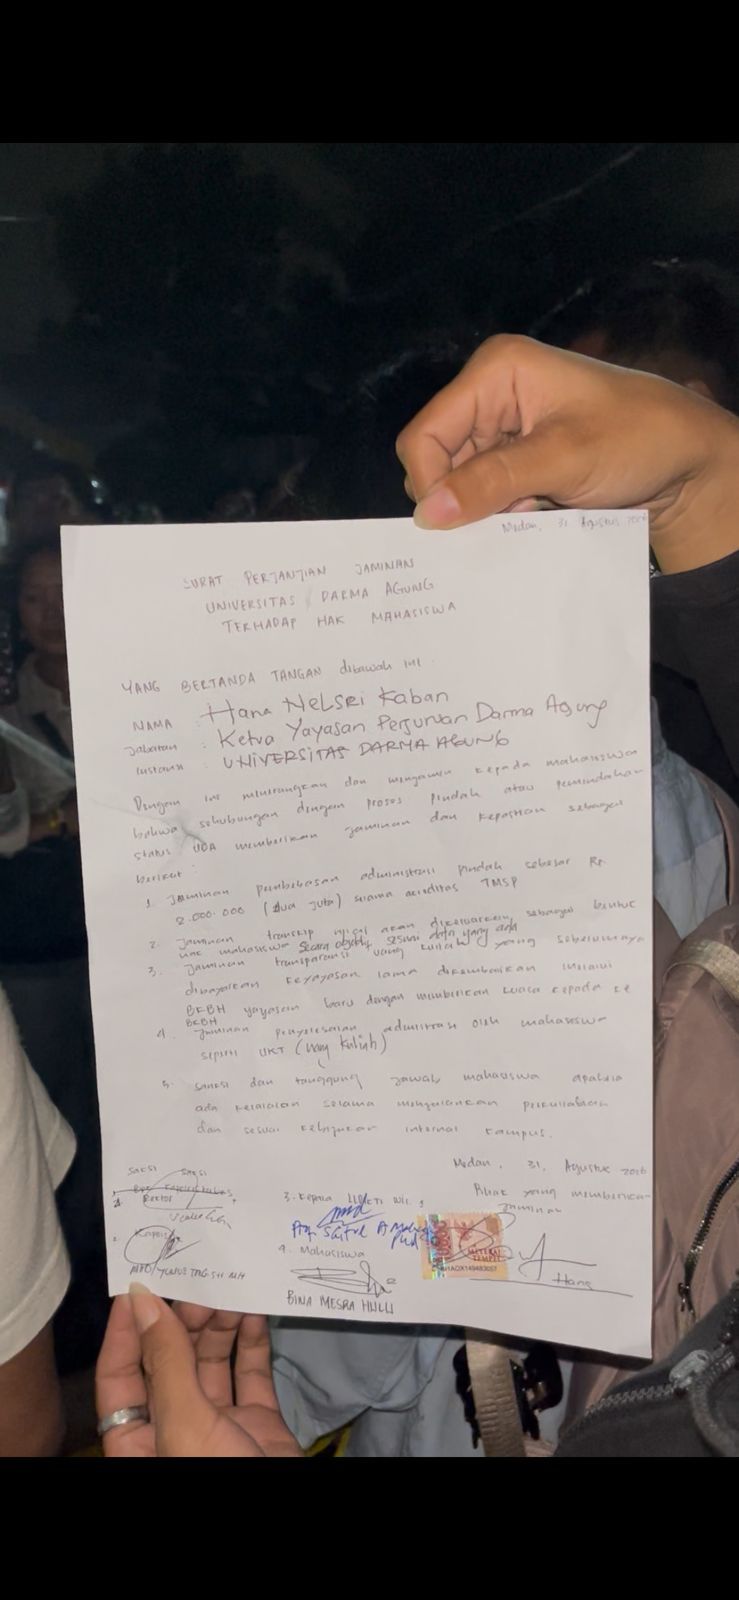 Medan, 31 Agustus 2016
SURAT PERJANJIAN JAMINAN
UNIVERSITAS DARMA AGUNG
TERHADAP HAK MAHASISWA
YANG BERTANDA TANGAN dibawah ini :
NAMA : Hana NELSRI Kaban
Jabatan : Ketua Yayasan Perguruan Darma Agung
: UNIVERSITAS DARMA AGUNG
Dengan ini menerangkan dan menjamin kepada mahasiswa
bahwa sehubungan dengan proses pindah atau pemindahan
status UDA memberikan jaminan dan kepastian sebagai
berikut :
1. Jaminan pembebasan administrasi pindah sebesar Rp.
2.000.000 (dua juta) selama TMSP
2. Jaminan transkip akan dikeluarkan, sebagai bentuk
hak mahasiswa secara sesuai data yang ada
3. Jaminan transparansi uang kuliah yang sebelumnya
dibayarkan keyayasan lama dikembalikan melalui
BKBH yayasan baru dengan memberikan kuasa kepada ke
BKBH
4. Jaminan penyelesaian oleh mahasiswa
seperti UKT (uang kuliah)
5. sanksi dan tanggung jawab mahasiswa apabila
ada kelalaian selama menjalankan perkuliahan
dan sesuai kebijakan internal kampus.
Medan, 31, Agustus 2016
Pihak yang memberikan
Jaminan
saksi saksi
Rektor
3. Kepala LLDKTI Wil. 1
4. Mahasiswa
BINA MESRA HULU
METERAI
TEMPEL
10000
Hana